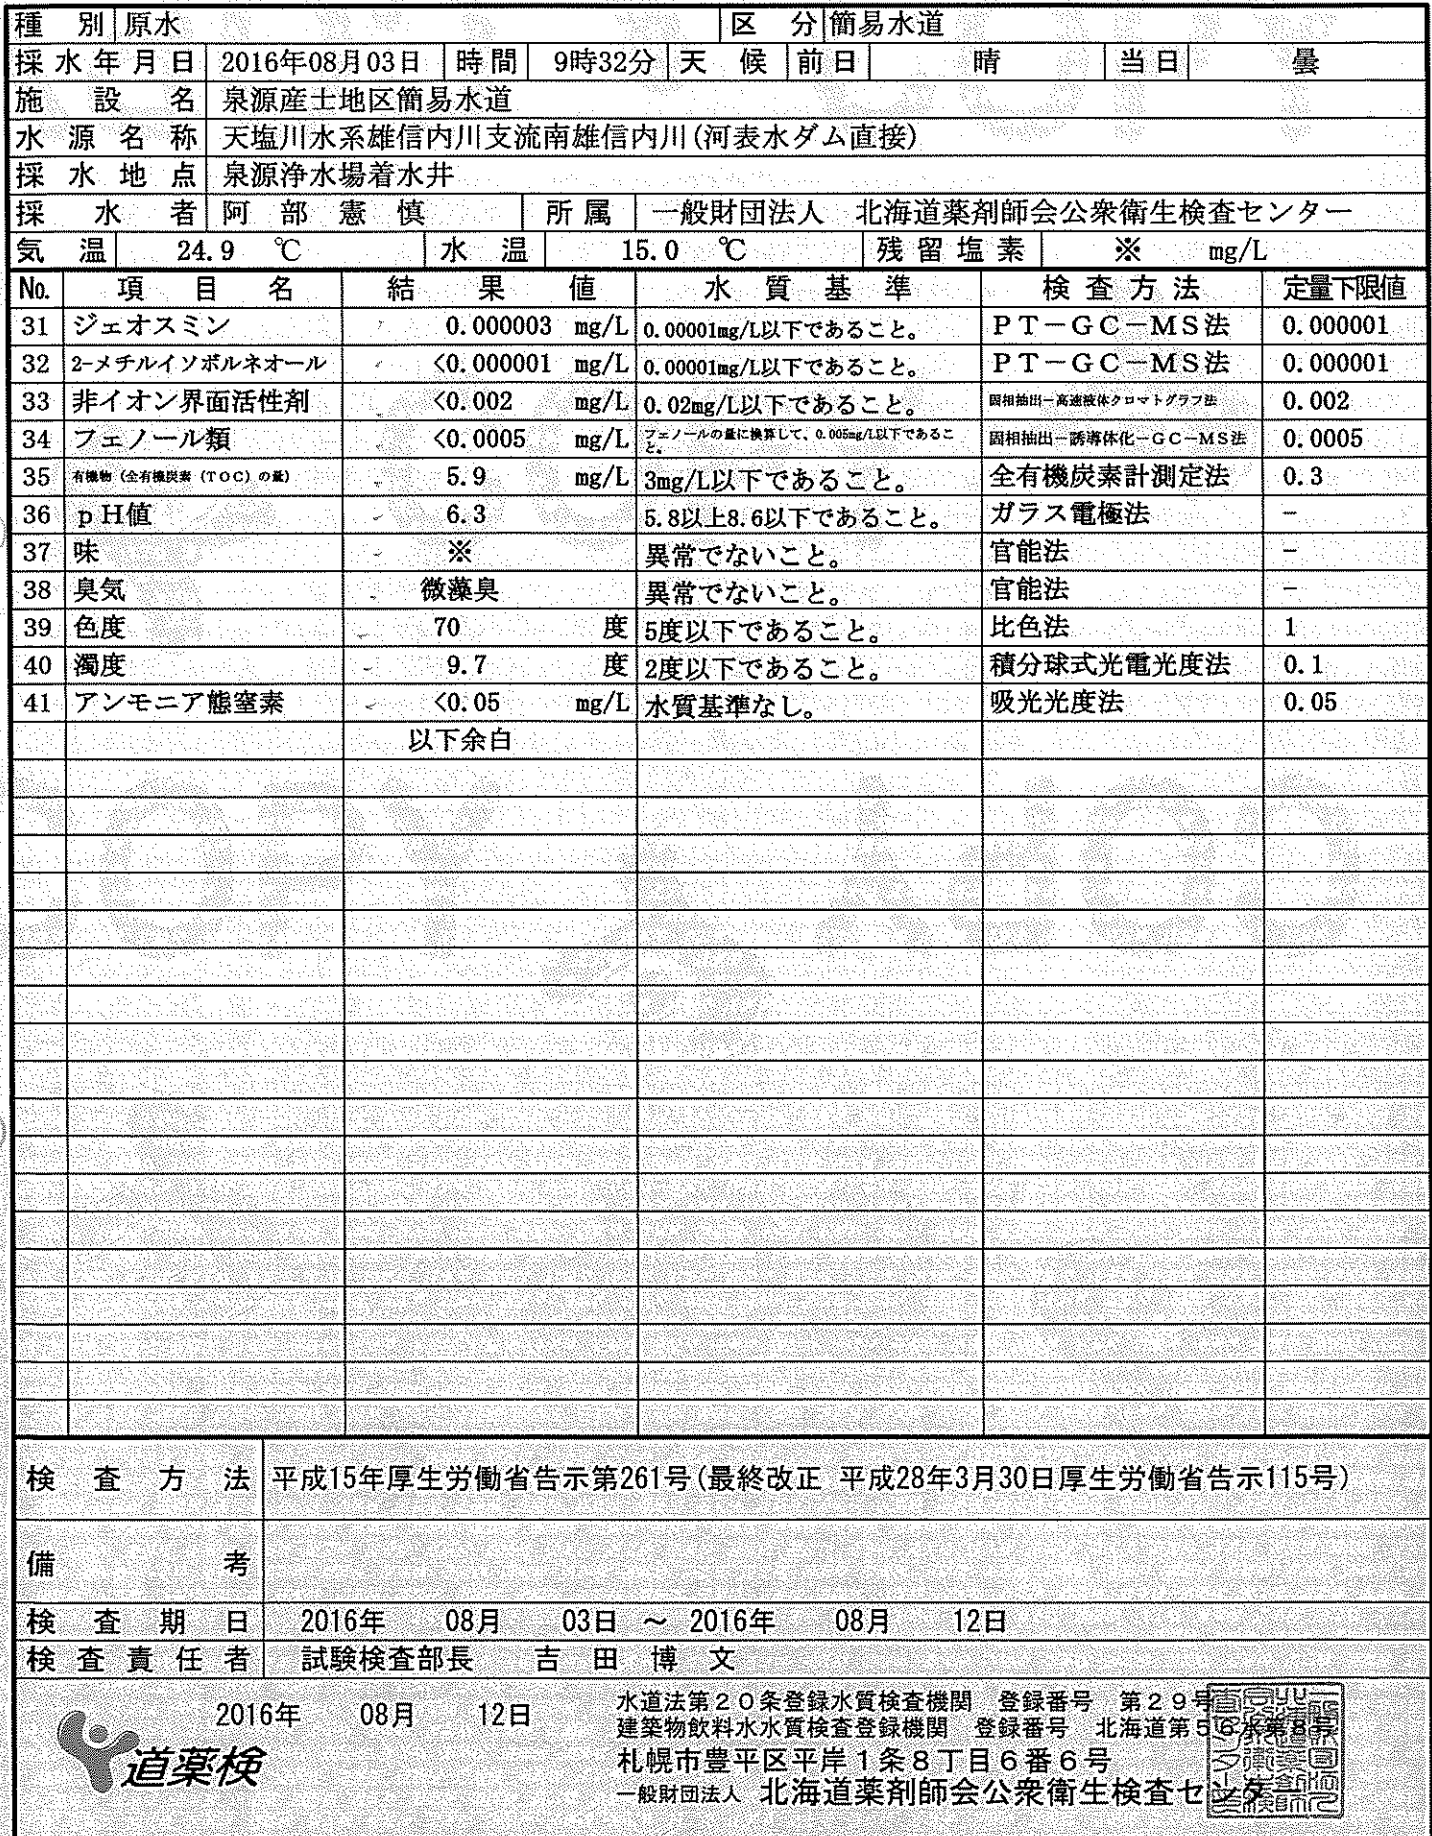 種別 原水 区分 簡易水道
採水年月日 2016年08月03日 時間 9時32分 天候 前日 晴 当日 曇
施設名 泉源産士地区簡易水道
水源名称 天塩川水系雄信内川支流南雄信内川(河表水ダム直接)
採水地点 泉源浄水場着水井
採水者 阿部憲慎 所属 一般財団法人 北海道薬剤師会公衆衛生検査センター
気温 24.9 ℃ 水温 15.0 ℃ 残留塩素 ※ mg/L
No. 項目名 結果値 水質基準 検査方法 定量下限値
31 ジェオスミン 0.000003 mg/L 0.00001mg/L以下であること。 PT-GC-MS法 0.000001
32 2-メチルイソボルネオール <0.000001 mg/L 0.00001mg/L以下であること。 PT-GC-MS法 0.000001
33 非イオン界面活性剤 <0.002 mg/L 0.02mg/L以下であること。 固相抽出-高速液体クロマトグラフ法 0.002
34 フェノール類 <0.0005 mg/L フェノールの量に換算して、0.005mg/L以下であること。 固相抽出-誘導体化-GC-MS法 0.0005
35 有機物(全有機炭素(TOC)の量) 5.9 mg/L 3mg/L以下であること。 全有機炭素計測定法 0.3
36 pH値 6.3 5.8以上8.6以下であること。 ガラス電極法 -
37 味 ※ 異常でないこと。 官能法 -
38 臭気 微藻臭 異常でないこと。 官能法 -
39 色度 70 度 5度以下であること。 比色法 1
40 濁度 9.7 度 2度以下であること。 積分球式光電光度法 0.1
41 アンモニア態窒素 <0.05 mg/L 水質基準なし。 吸光光度法 0.05
以下余白
検査方法 平成15年厚生労働省告示第261号(最終改正 平成28年3月30日厚生労働省告示115号)
備考
検査期日 2016年 08月 03日 ~ 2016年 08月 12日
検査責任者 試験検査部長 吉田博文
2016年 08月 12日
道薬検
水道法第20条登録水質検査機関 登録番号 第29号
建築物飲料水水質検査登録機関 登録番号 北海道第56水第8号
札幌市豊平区平岸1条8丁目6番6号
一般財団法人 北海道薬剤師会公衆衛生検査センター